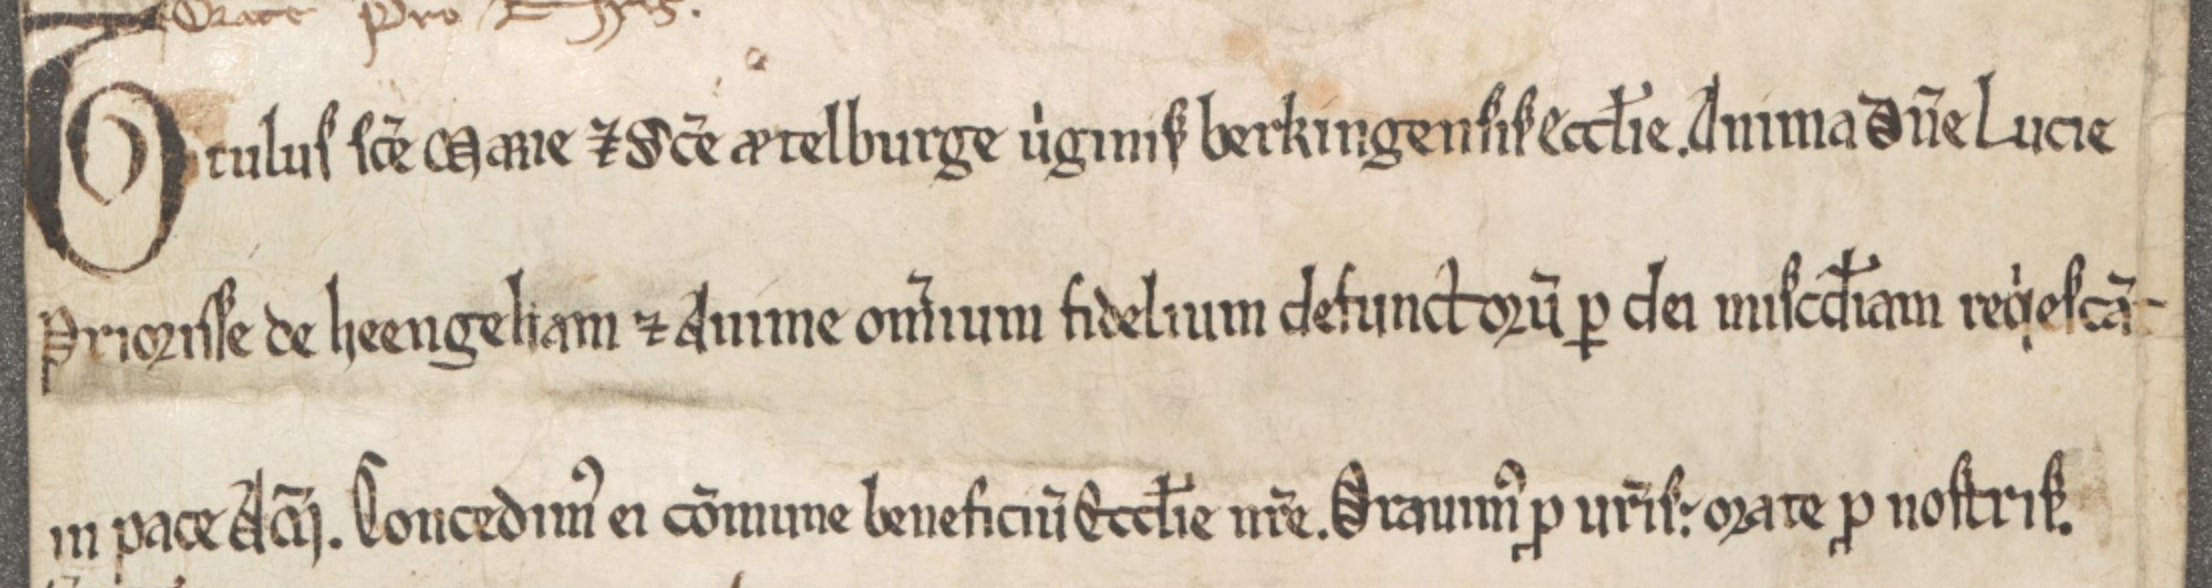 Orate pro
Titulus sc̄e Marie ⁊ Sc̄e ætelburge u̇ginis berkingensis Eccl̄ie. Anima Dn̄e Lucie
Priorisse de heengeham ⁊ Anime om̄ium fidelium defunctorū ꝑ dei misc̄diam req̇escāt
in pace Am̄. Concedimꝰ ei cōmune beneficiū Eccl̄ie nr̄e. Orauimꝰ ꝓ ur̄is: orate ꝓ nostris.